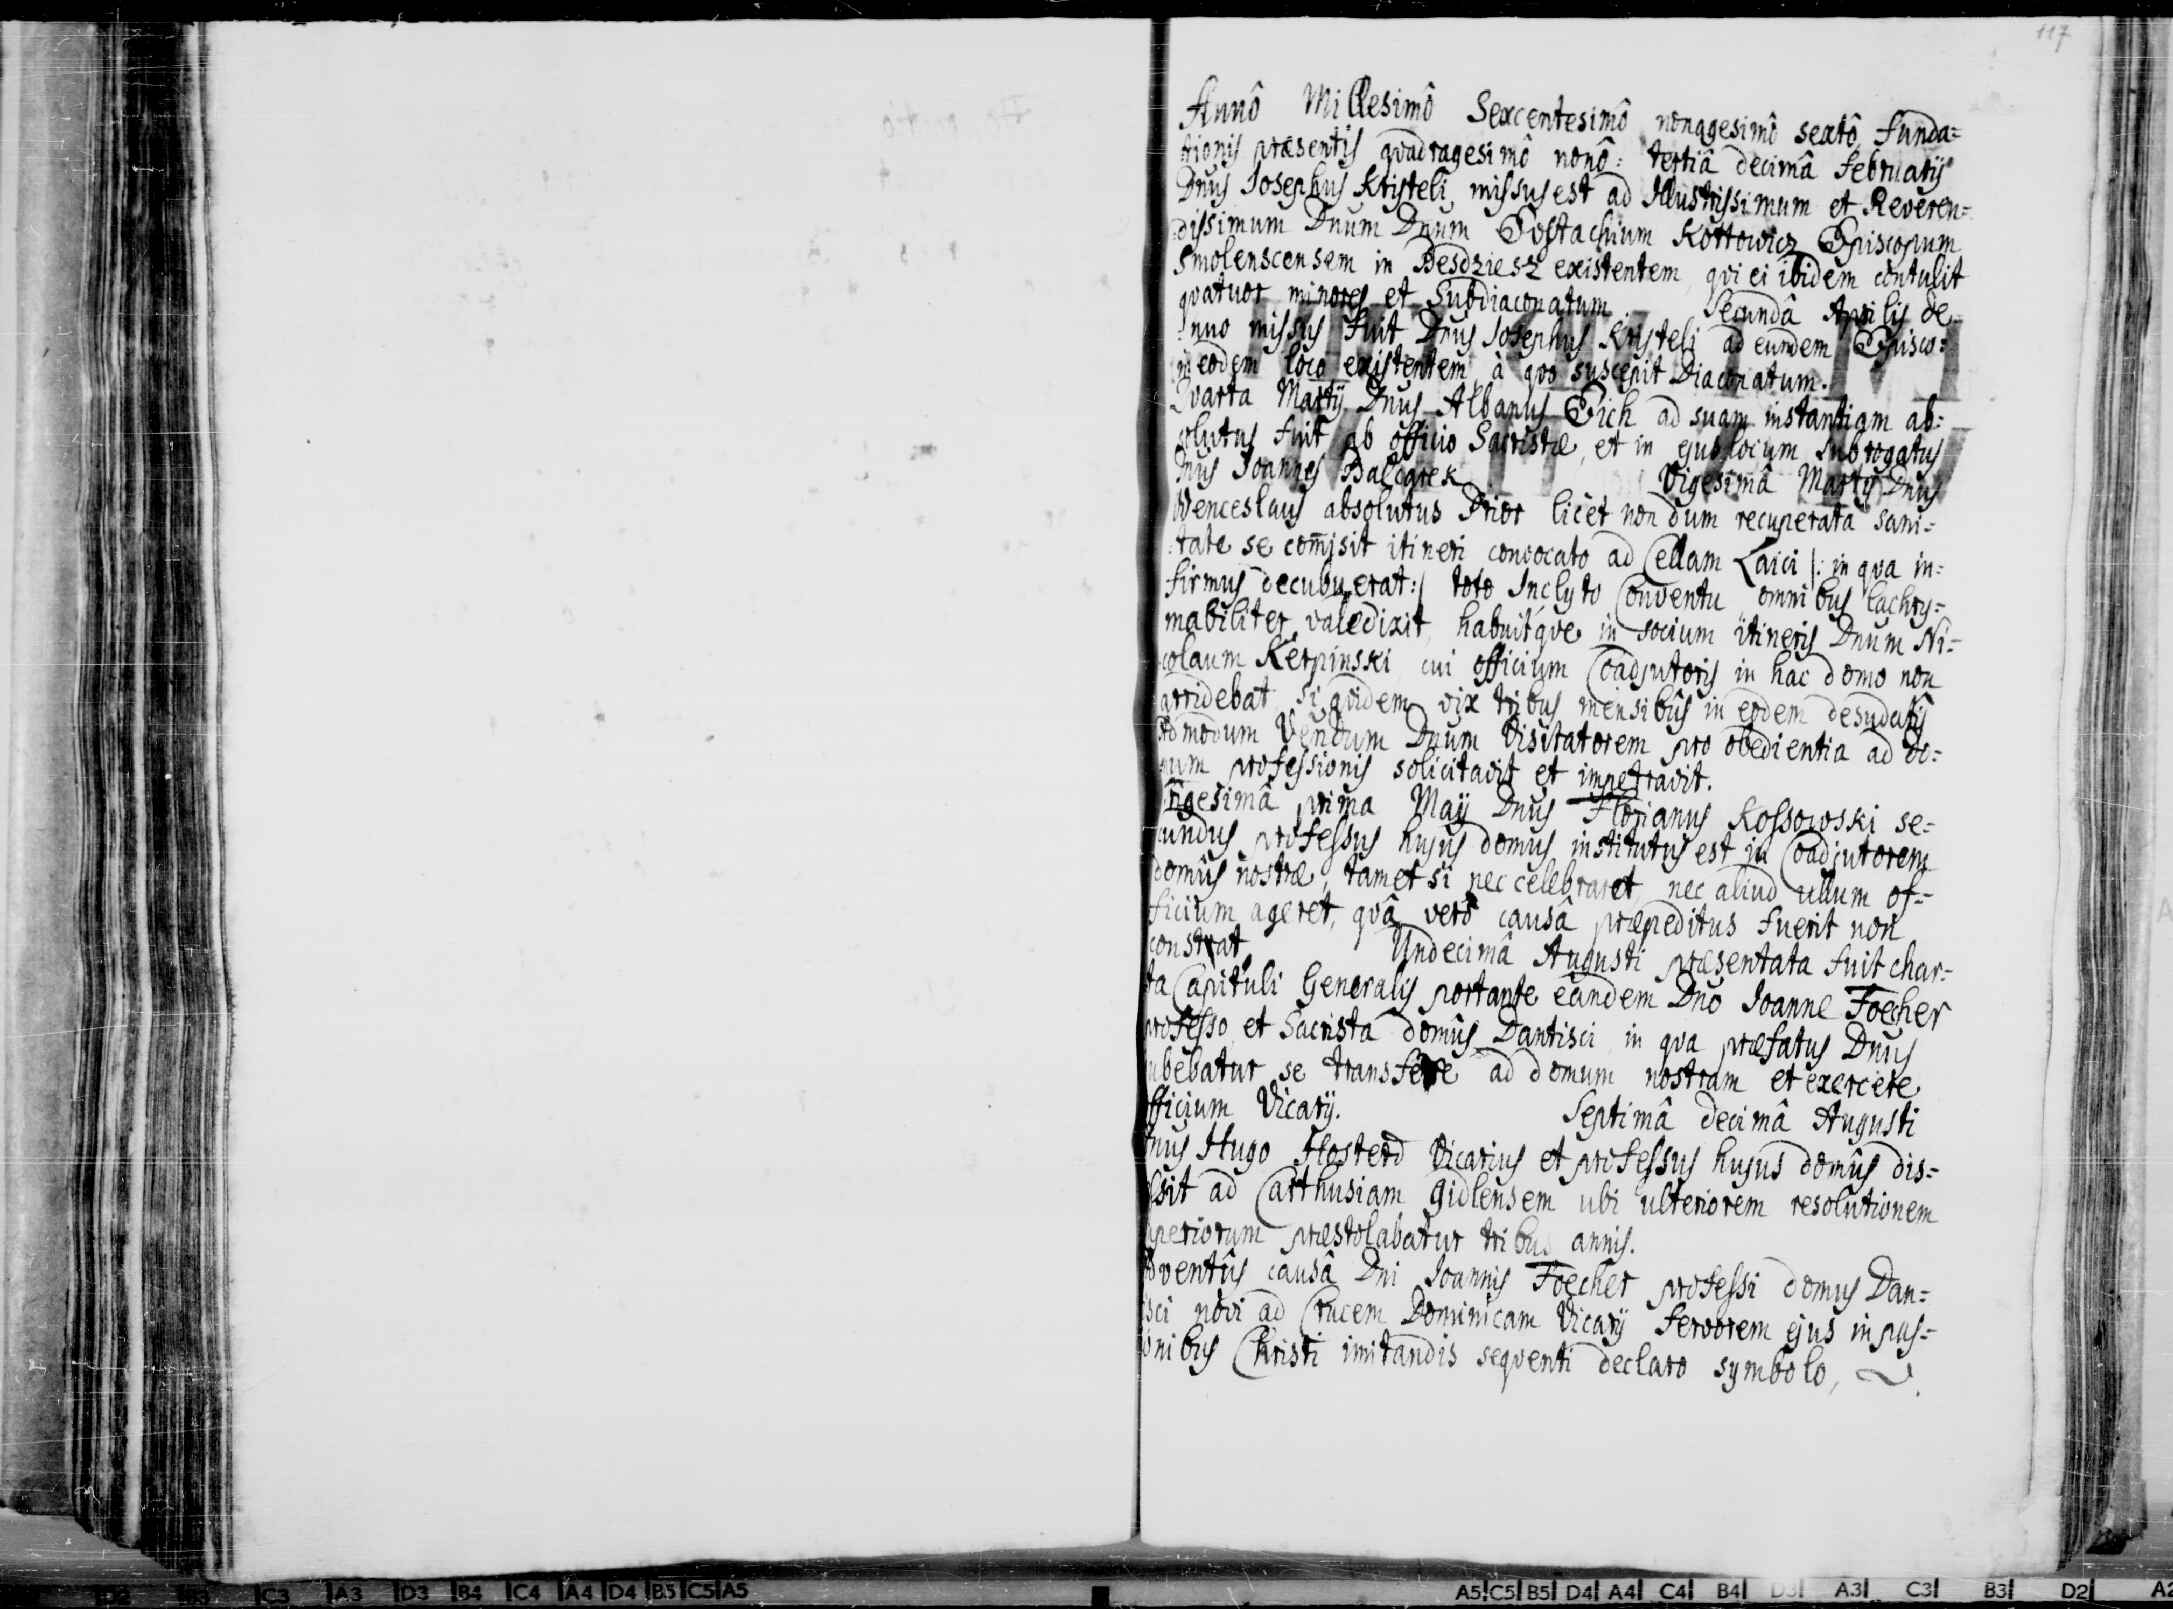 117
Annô Millesimô Sexcentesimô nonagesimô sextô, funda=
tionis præsentis qvadragesimô nonô: tertiâ decimâ Februarij
Dnus Josephus Kristeli missus est ad Illustrissimum et Reveren=
dissimum Dnum Dnum Evstachium Kottowicz Episcopum
Smolenscensem in Besdziesz existentem, qvi ei ibidem contulit
qvatuor minores et Subdiaconatum. Secundâ Aprilis de=
nuo missus fuit Dnus Josephus Kristeli ad eundem Episco:
in eodem loco existentem à qvo suscepit Diaconatum.
Qvarta Martij Dnus Albanus Eich ad suam instantiam ab=
solutus fuit ab officio Sacristæ, et in ejus locum subrogatus
Dnus Joannes Balcarek. Vigesimâ Martij Dnus
Wenceslaus absolutus Prior licet non dum recuperata sani=
tate se comisit itineri convocato ad Cellam Laici |: in qva in=
firmus decubuerat :| toto Inclyto Conventu omnibus lachry=
mabiliter valedixit, habuitqve in socium itineris Dnum Ni=
colaum Kerpinski cui officium Coadjutoris in hac domo non
arridebat, siqvidem vix tribus mensibûs in eodem desudatis
Admodum Vendum Dnum Visitatorem pro obedientia ad do=
mum professionis solicitavit et impetravit.
Vigesimâ prima Maij Dnus Florianus Kossowski se=
cundus professus hujus domus institutus est in Coadjutorem
domûs nostræ, tametsi nec celebraret, nec aliud ullum of=
ficium ageret, qvâ verò causâ præpeditus fuerit non
constat. Undecimâ Augusti præsentata fuit char=
ta Capituli Generalis portante eandem Dno Joanne Foecher
professo et Sacrista domûs Dantisci in qva præfatus Dnus
jubebatur se transferre ad domum nostram et exercere
officium Vicarij. Septimâ decimâ Augusti
Dnus Hugo Flosterd Vicarius et professus hujus domûs dis=
cessit ad Carthusiam Gidlensem ubi ulteriorem resolutionem
superiorum præstolabatur tribus annis.
Adventûs causâ Dni Joannis Foecher professi domus Dan=
tisci novi ad Crucem Dominicam Vicarij fervorem ejus in pas=
sionibus Christi imitandis seqventi declaro symbolo,
D2 B3 C3 A3 D3 B4 C4 A4 D4 B5 C5 A5
A5 C5 B5 D4 A4 C4 B4 D3 A3 C3 B3 D2 A2